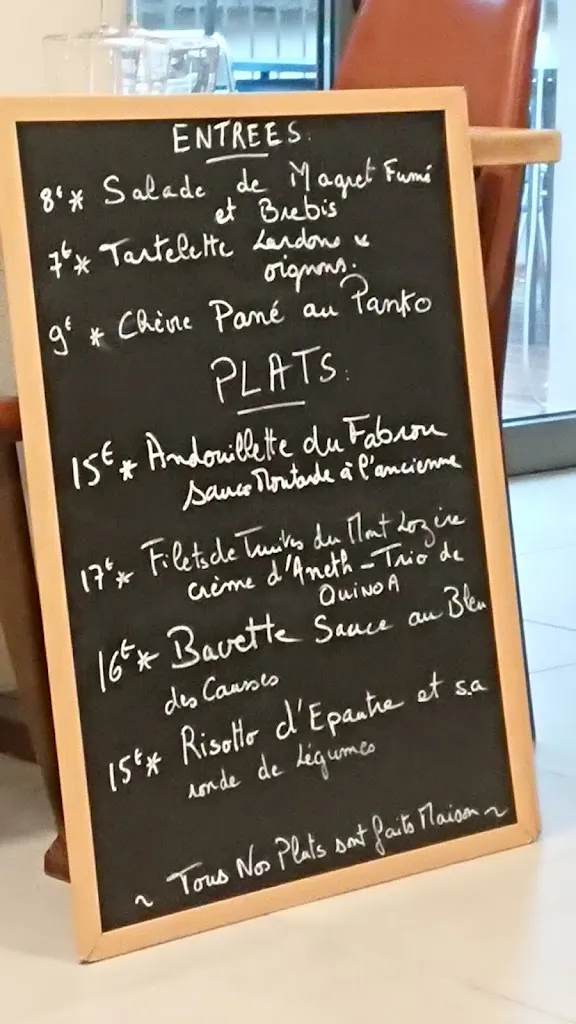 ENTREES:
8€ * Salade de Magret Fumé
et Brebis
7€ * Tartelette Lardons &
oignons.
9€ * Chèvre Pané au Panko
PLATS:
15€ * Andouillette du Fabrou
Sauce Moutarde à l'ancienne
17€ * Filets de Truites du Mont Lozère
crème d'Aneth - Trio de
QUINOA
16€ * Bavette Sauce au Bleu
des Causses
15€ * Risotto d'Epautre et sa
ronde de Légumes
~ Tous Nos Plats sont faits Maison ~